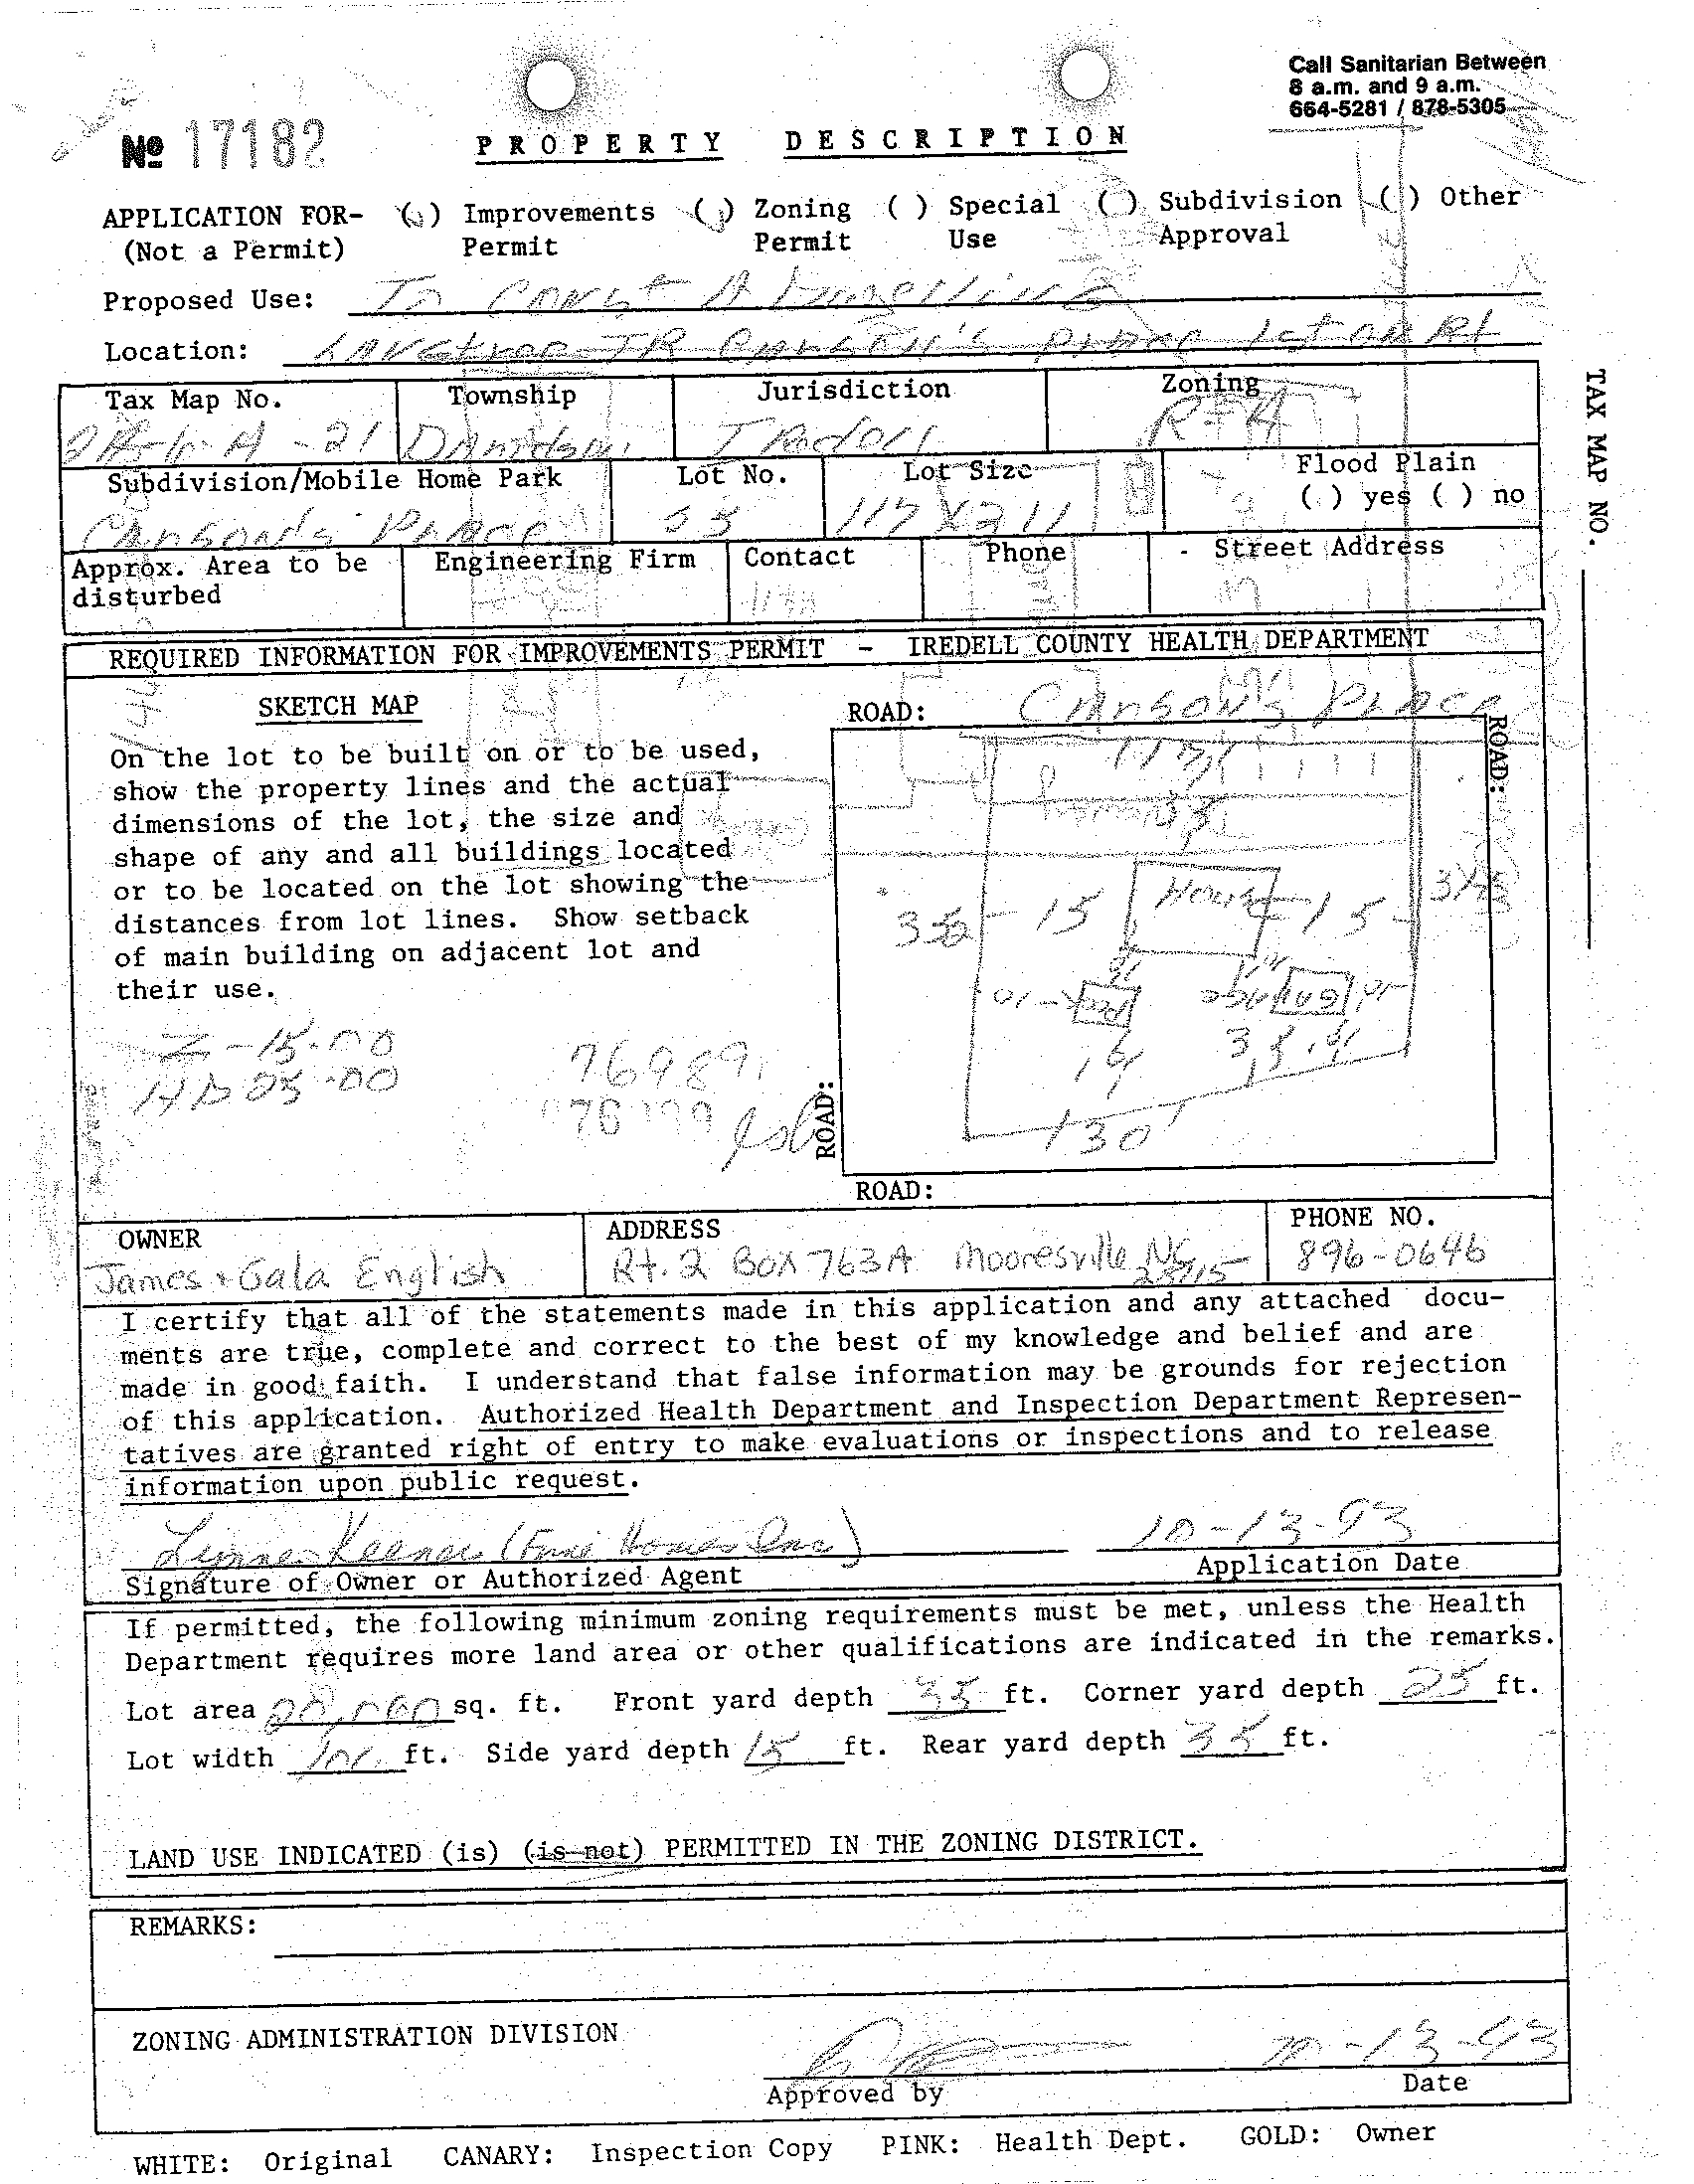 Call Sanitarian Between
8 a.m. and 9 a.m.
664-5281 / 878-5305
№ 17182
PROPERTY DESCRIPTION
APPLICATION FOR- ( ) Improvements ( ) Zoning ( ) Special ( ) Subdivision ( ) Other
(Not a Permit) Permit Permit Use Approval
Proposed Use: To Const A Dwelling
Location: Langtree TR Canson's Place 1st on Rt
Tax Map No. Township Jurisdiction Zoning
Davidson Iredell R-A
Subdivision/Mobile Home Park Lot No. Lot Size Flood Plain
( ) yes ( ) no
Canson's Place 117 X 211
Approx. Area to be Engineering Firm Contact Phone Street Address
disturbed
TAX MAP NO.
REQUIRED INFORMATION FOR IMPROVEMENTS PERMIT - IREDELL COUNTY HEALTH DEPARTMENT
SKETCH MAP
ROAD: Canson's Place
On the lot to be built on or to be used,
show the property lines and the actual
dimensions of the lot, the size and
shape of any and all buildings located
or to be located on the lot showing the
distances from lot lines. Show setback
of main building on adjacent lot and
their use.
ROAD:
117'
15 House 15
130'
Z-15.00
HD 25.00
76989
ROAD:
ROAD:
OWNER ADDRESS PHONE NO.
James + Gala English Rt. 2 Box 763A Mooresville NC 28115 896-0646
I certify that all of the statements made in this application and any attached docu-
ments are true, complete and correct to the best of my knowledge and belief and are
made in good faith. I understand that false information may be grounds for rejection
of this application. Authorized Health Department and Inspection Department Represen-
tatives are granted right of entry to make evaluations or inspections and to release
information upon public request.
Lynne Keener (Homes Inc) 10-13-93
Signature of Owner or Authorized Agent Application Date
If permitted, the following minimum zoning requirements must be met, unless the Health
Department requires more land area or other qualifications are indicated in the remarks.
Lot area 20,000 sq. ft. Front yard depth 35 ft. Corner yard depth 25 ft.
Lot width 100 ft. Side yard depth 15 ft. Rear yard depth 35 ft.
LAND USE INDICATED (is) (is not) PERMITTED IN THE ZONING DISTRICT.
REMARKS:
ZONING ADMINISTRATION DIVISION
10-13-93
Approved by Date
WHITE: Original CANARY: Inspection Copy PINK: Health Dept. GOLD: Owner